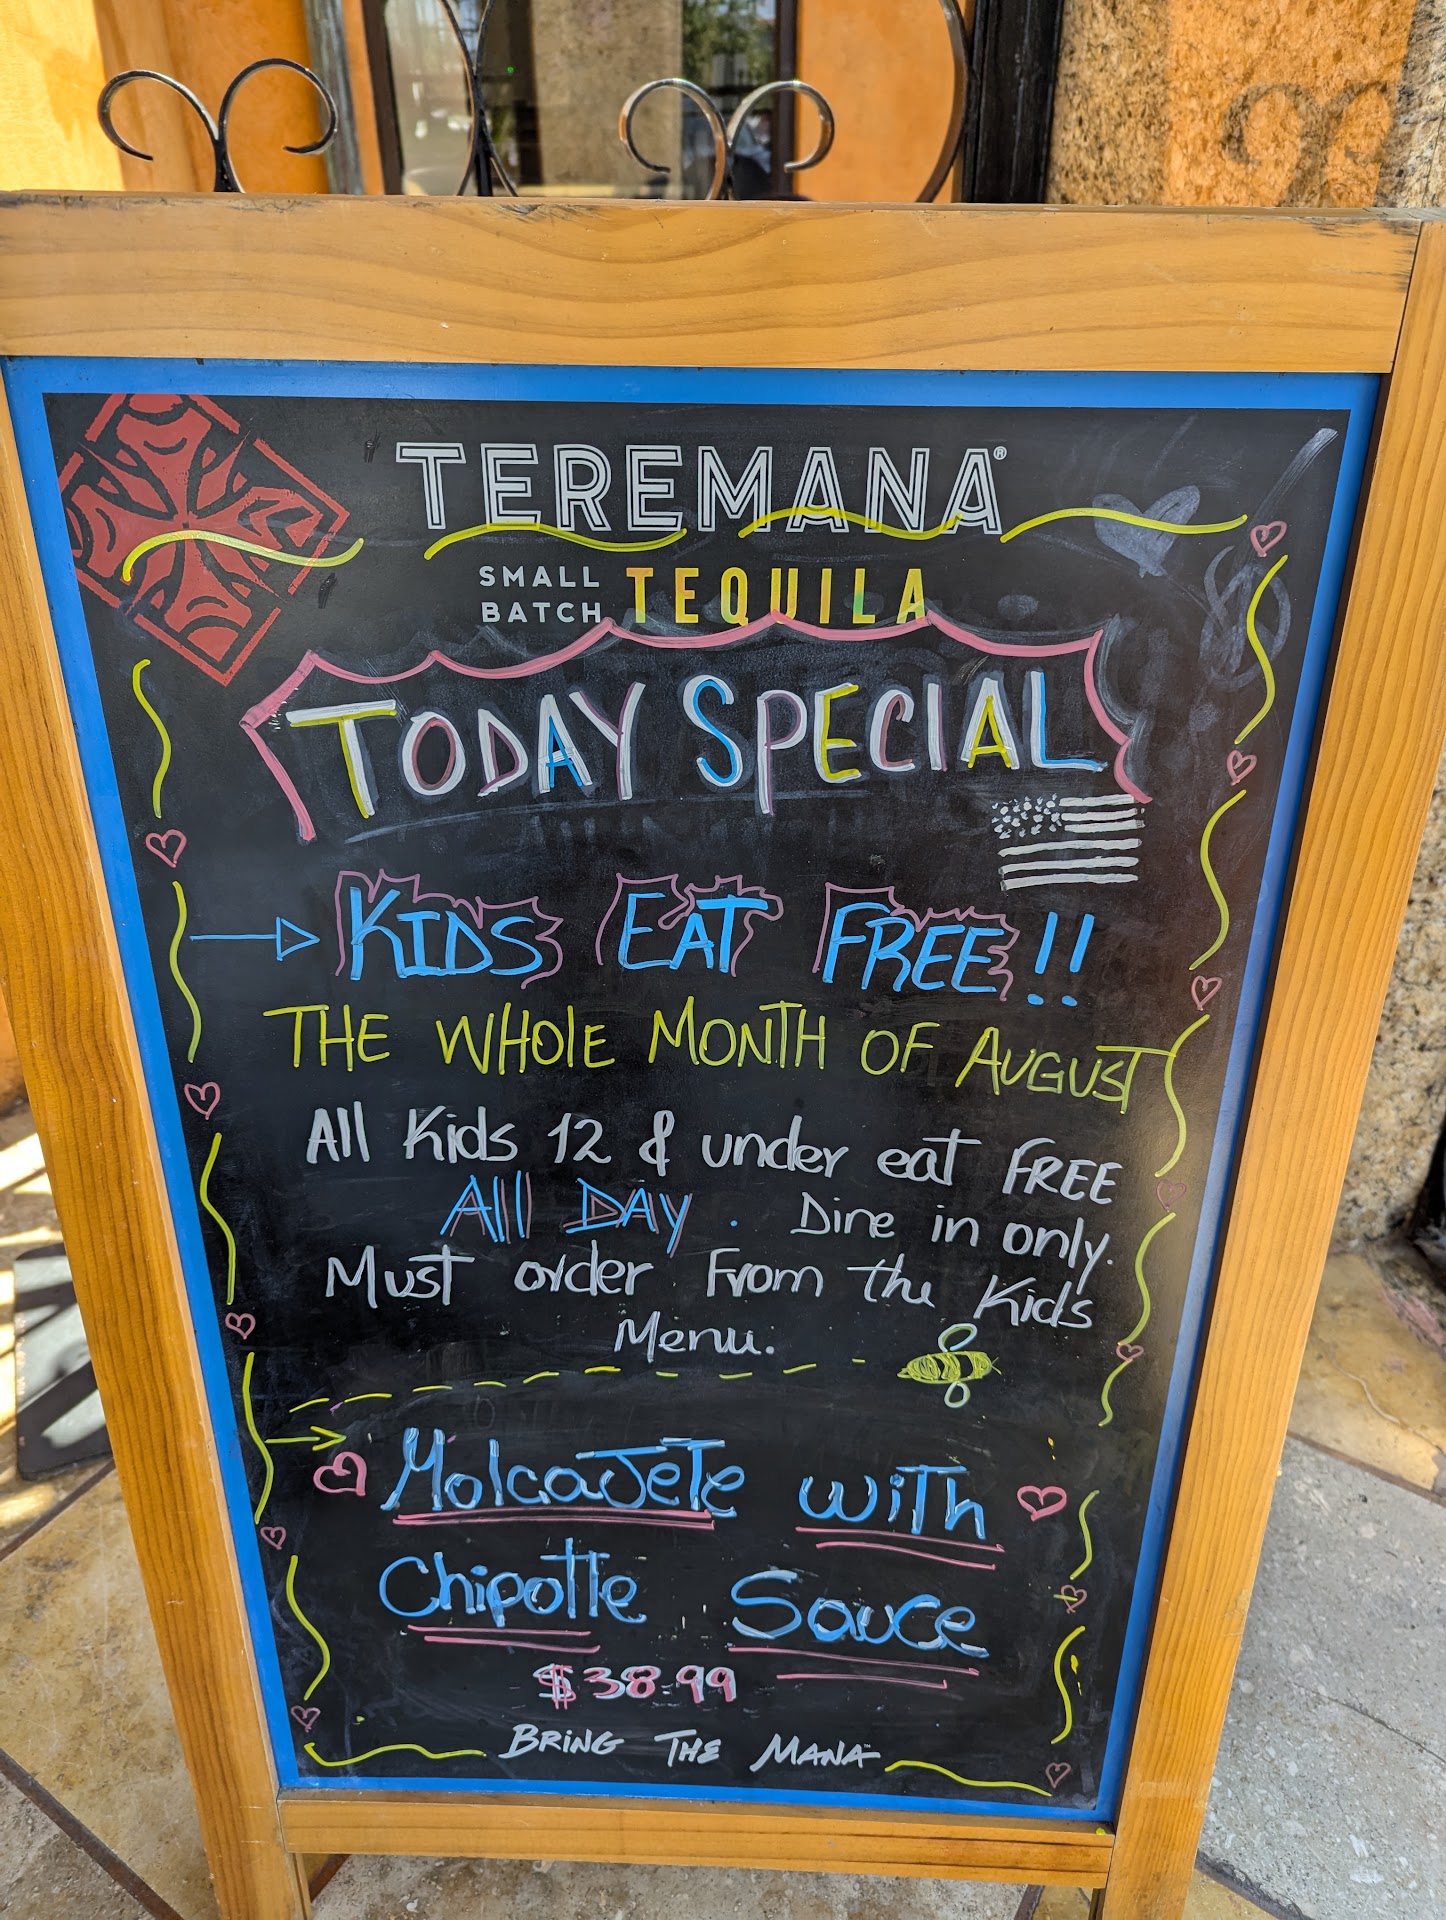 TEREMANA®
SMALL BATCH TEQUILA
TODAY SPECIAL
KIDS EAT FREE!!
THE WHOLE MONTH OF AUGUST
All Kids 12 & under eat FREE
All DAY. Dine in only.
Must order From the Kids
Menu.
MolcaJeTe wiTh
ChipoTle Sauce
$38.99
BRING THE MANA™